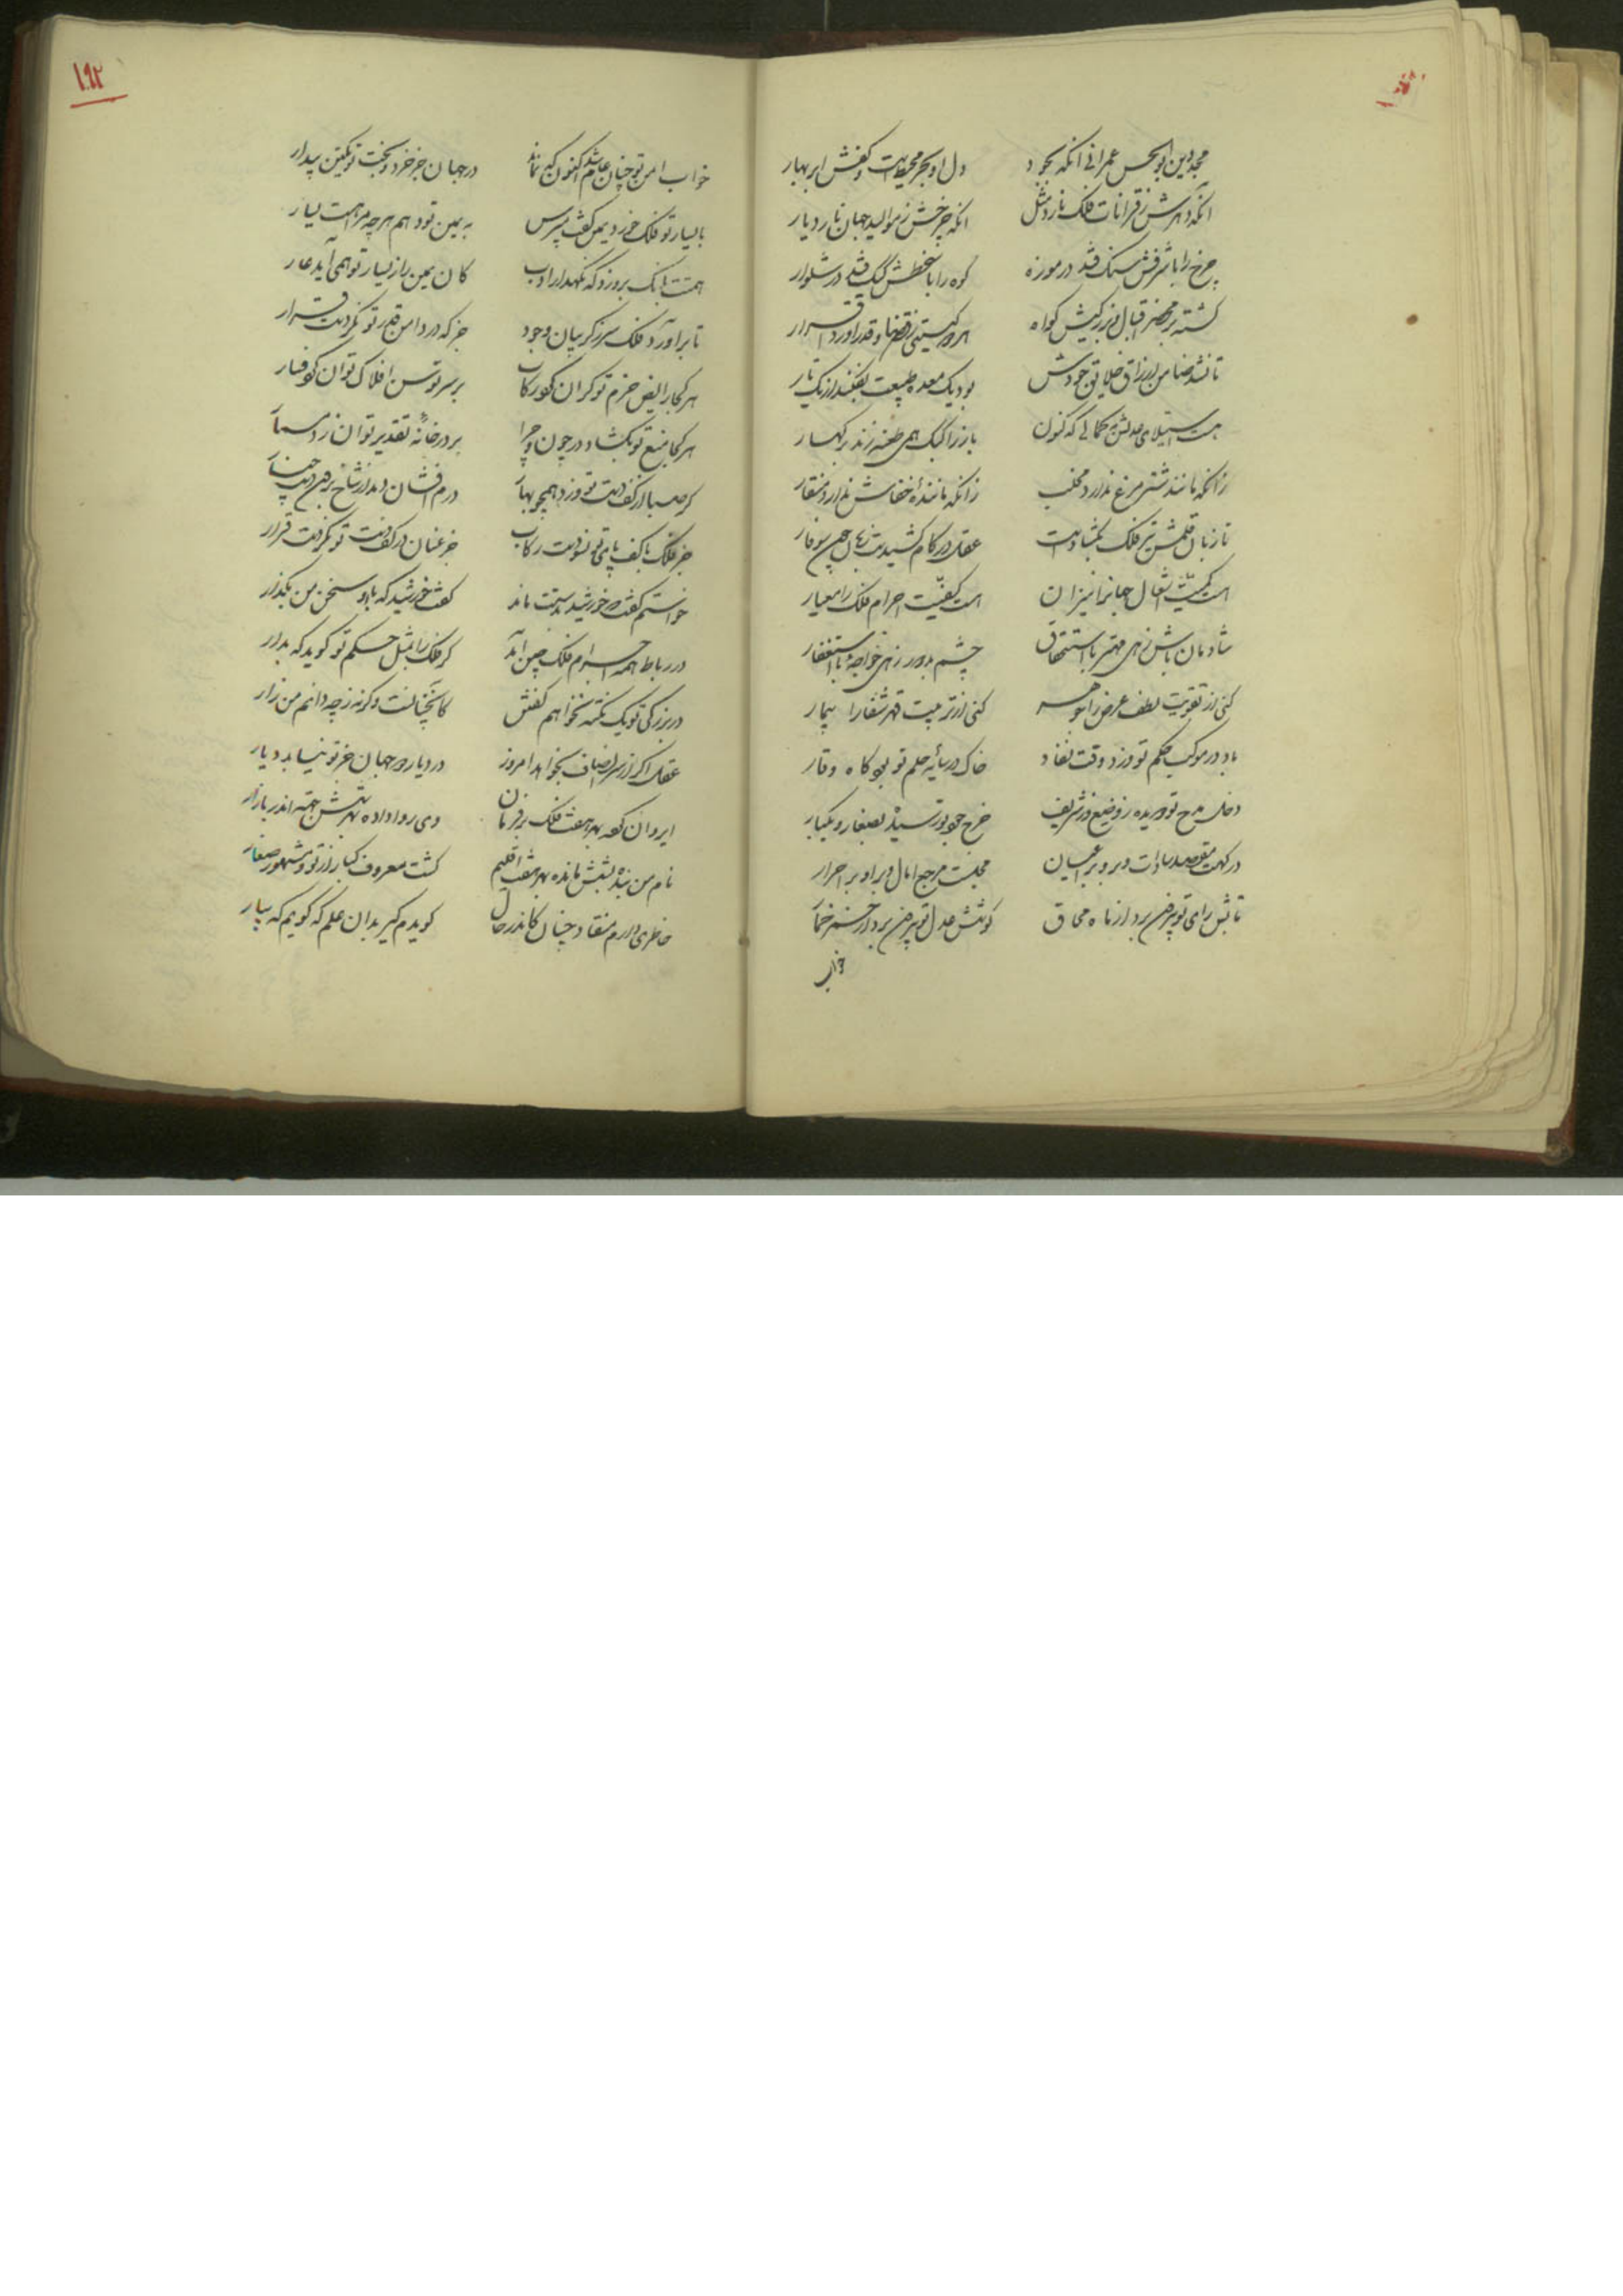 مجد دین ابوالحسن عمرانی انکه بجود دل او بحر محیطست و کفش ابر بهار
انکه در هرش ز قرانات فلک نارد مثل انکه چرخش ز موالید جهان نارد یار
چرخ را با شرفش سنک فتد در موزه کوه را با سخطش کیک فتد در شلوار
کشته بر محضر اقبال بزرکیش کواه هرچه کیتی ز قضا و قدر آورد اقرار
تا نشد ضامن ارزاق خلایق جودش بود یک معده طبیعت نفکند از تک بار
هست استیلای عدلش بکمالی که کنون باز را کبک همی طعنه زند بر کهسار
زانکه مانند شتر مرغ ندارد مخلب زانکه مانندهٔ خفاش ندارد منقار
تا زبان قلمش تیر فلک بکشادست عقل در کام کشیدست زبان چون سوفار
است کمیت اثقال جهانرا میزان است کیفیت اجرام فلک را معیار
شادمان باش زهی مهتر با استحقاق چشم بد دور زهی خواجهٔ با استغفار
کنی از تقویت لطف عرض را جوهر کنی از تربیت قهر شفا را بیمار
باد در موکب حکم تو وزد وقت نفاد خاک در سایهٔ حلم تو بود کاه وقار
دخل مدح تو دویده ز وضیع و ز شریف خرج جود تو رسیده بصغار و بکبار
درکهت مقصد سادات و برو بر اعیان مجلست مرجع امال و برو بر احرار
تابش رای تو بیرون برد از ماه محاق کوشش عدل تو بیرون برد از خمر خمار
خواب
خواب امن تو چنان عام شد اکنون که نماند در جهان جز خرد و بخت تو یکتن بیدار
با یسار تو فلک خورد یمین کفت مپرس به یمین تو دهم هرچه مراهست یسار
همتت بانک برو زد که نکهدار ادب کان یمین را ز یسار تو همی آید عار
تا برآورد فلک سر ز کریبان وجود جز که در دامن قدر تو نکردست قرار
هر کجا رایض حزم تو کران کرد رکاب بر سر توسن افلاک توان کرد فسار
هر کجا منع تو بکشاد در چون و چرا بر در خانهٔ تقدیر توان زد مسمار
کر صبا از کف دست تو وزد همچو بهار درم افشان دمد از شاخ برون دست چنار
جز فلک با کف پای تو نسودست رکاب جز عنان در کف دست تو نکردست قرار
خواستم کفت خورشید بدستت ماند کفت خورشید که با او سخن من بکذار
در رباط همه اجرام فلک چین آید کر فلک را بمثل حکم تو کوید که بدار
در بزرکی تو یک نکته نخواهم کفتن کانچنانست وکرنه زچه دانم من زار
عقل اکر از سر انصاف بخواهد امروز در دیار و در جهان جز تو نیابد دیار
ای روان کرده بهر هفت فلک بر فرمان وی روا داده بهر شش جهت اندر بازار
نام من بنده بشش ماه بهر هفت اقلیم کشت معروف کبار از تو و مشهور صغار
خاطری دارم منقاد چنان کاندر حال کویدم کیر بدان علم که کویم که بیار
۱۹۲